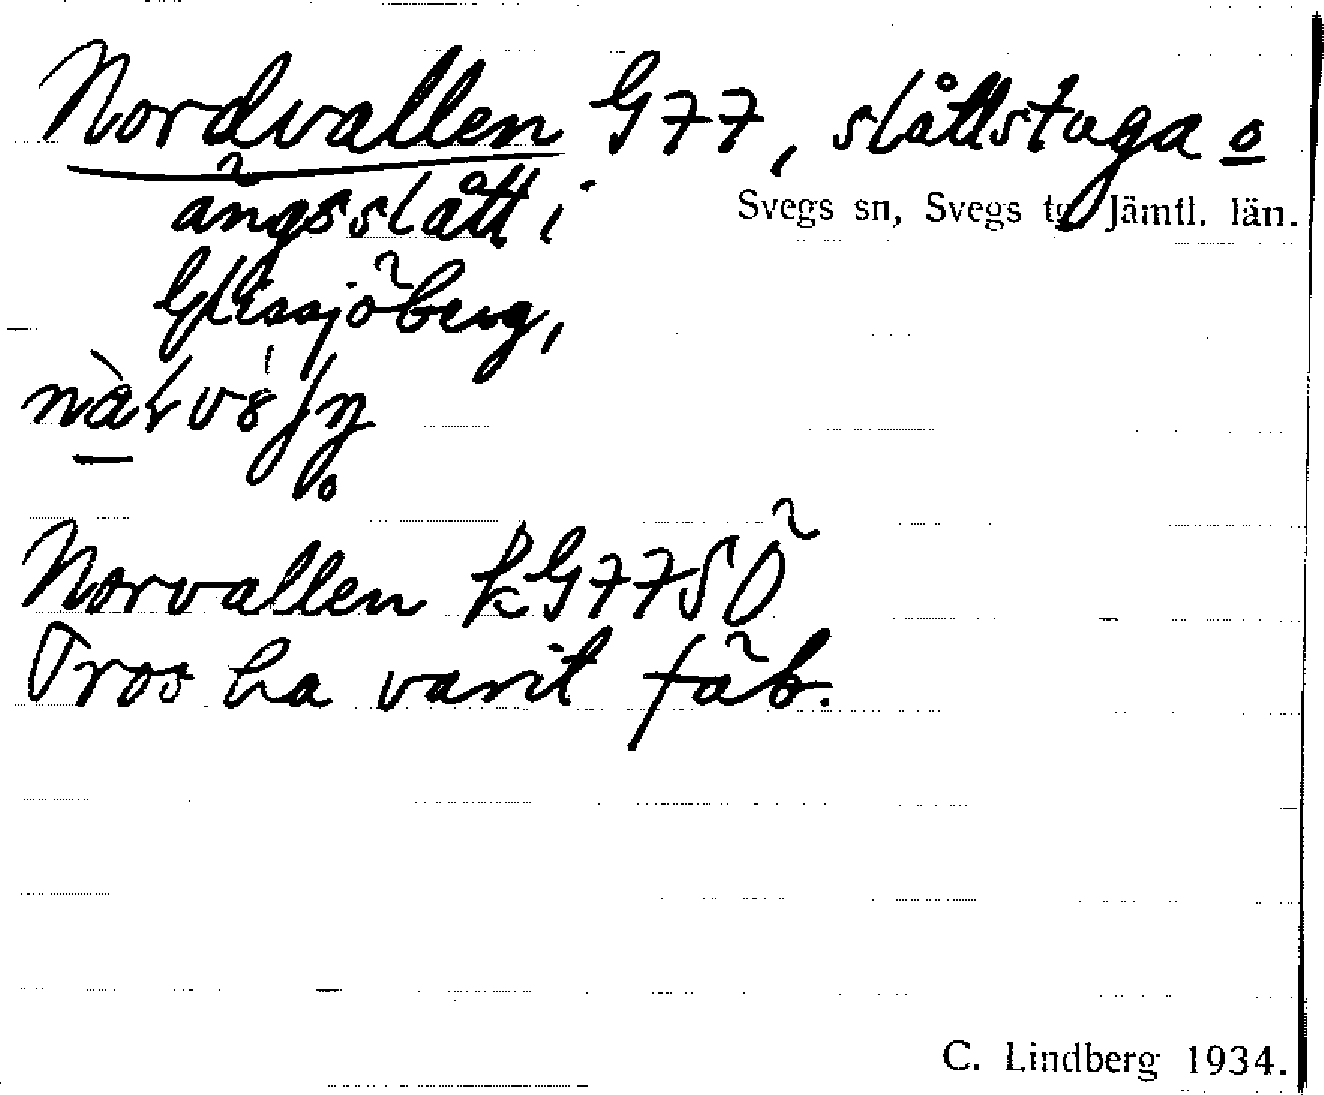 Nordvallen G77, slåttstuga o
ängsslått i
Svegs sn, Svegs tg, Jämtl. län.
Glissjöberg,
Norvallen kG77SÖ
Tros ha varit fäb.
C. Lindberg 1934.